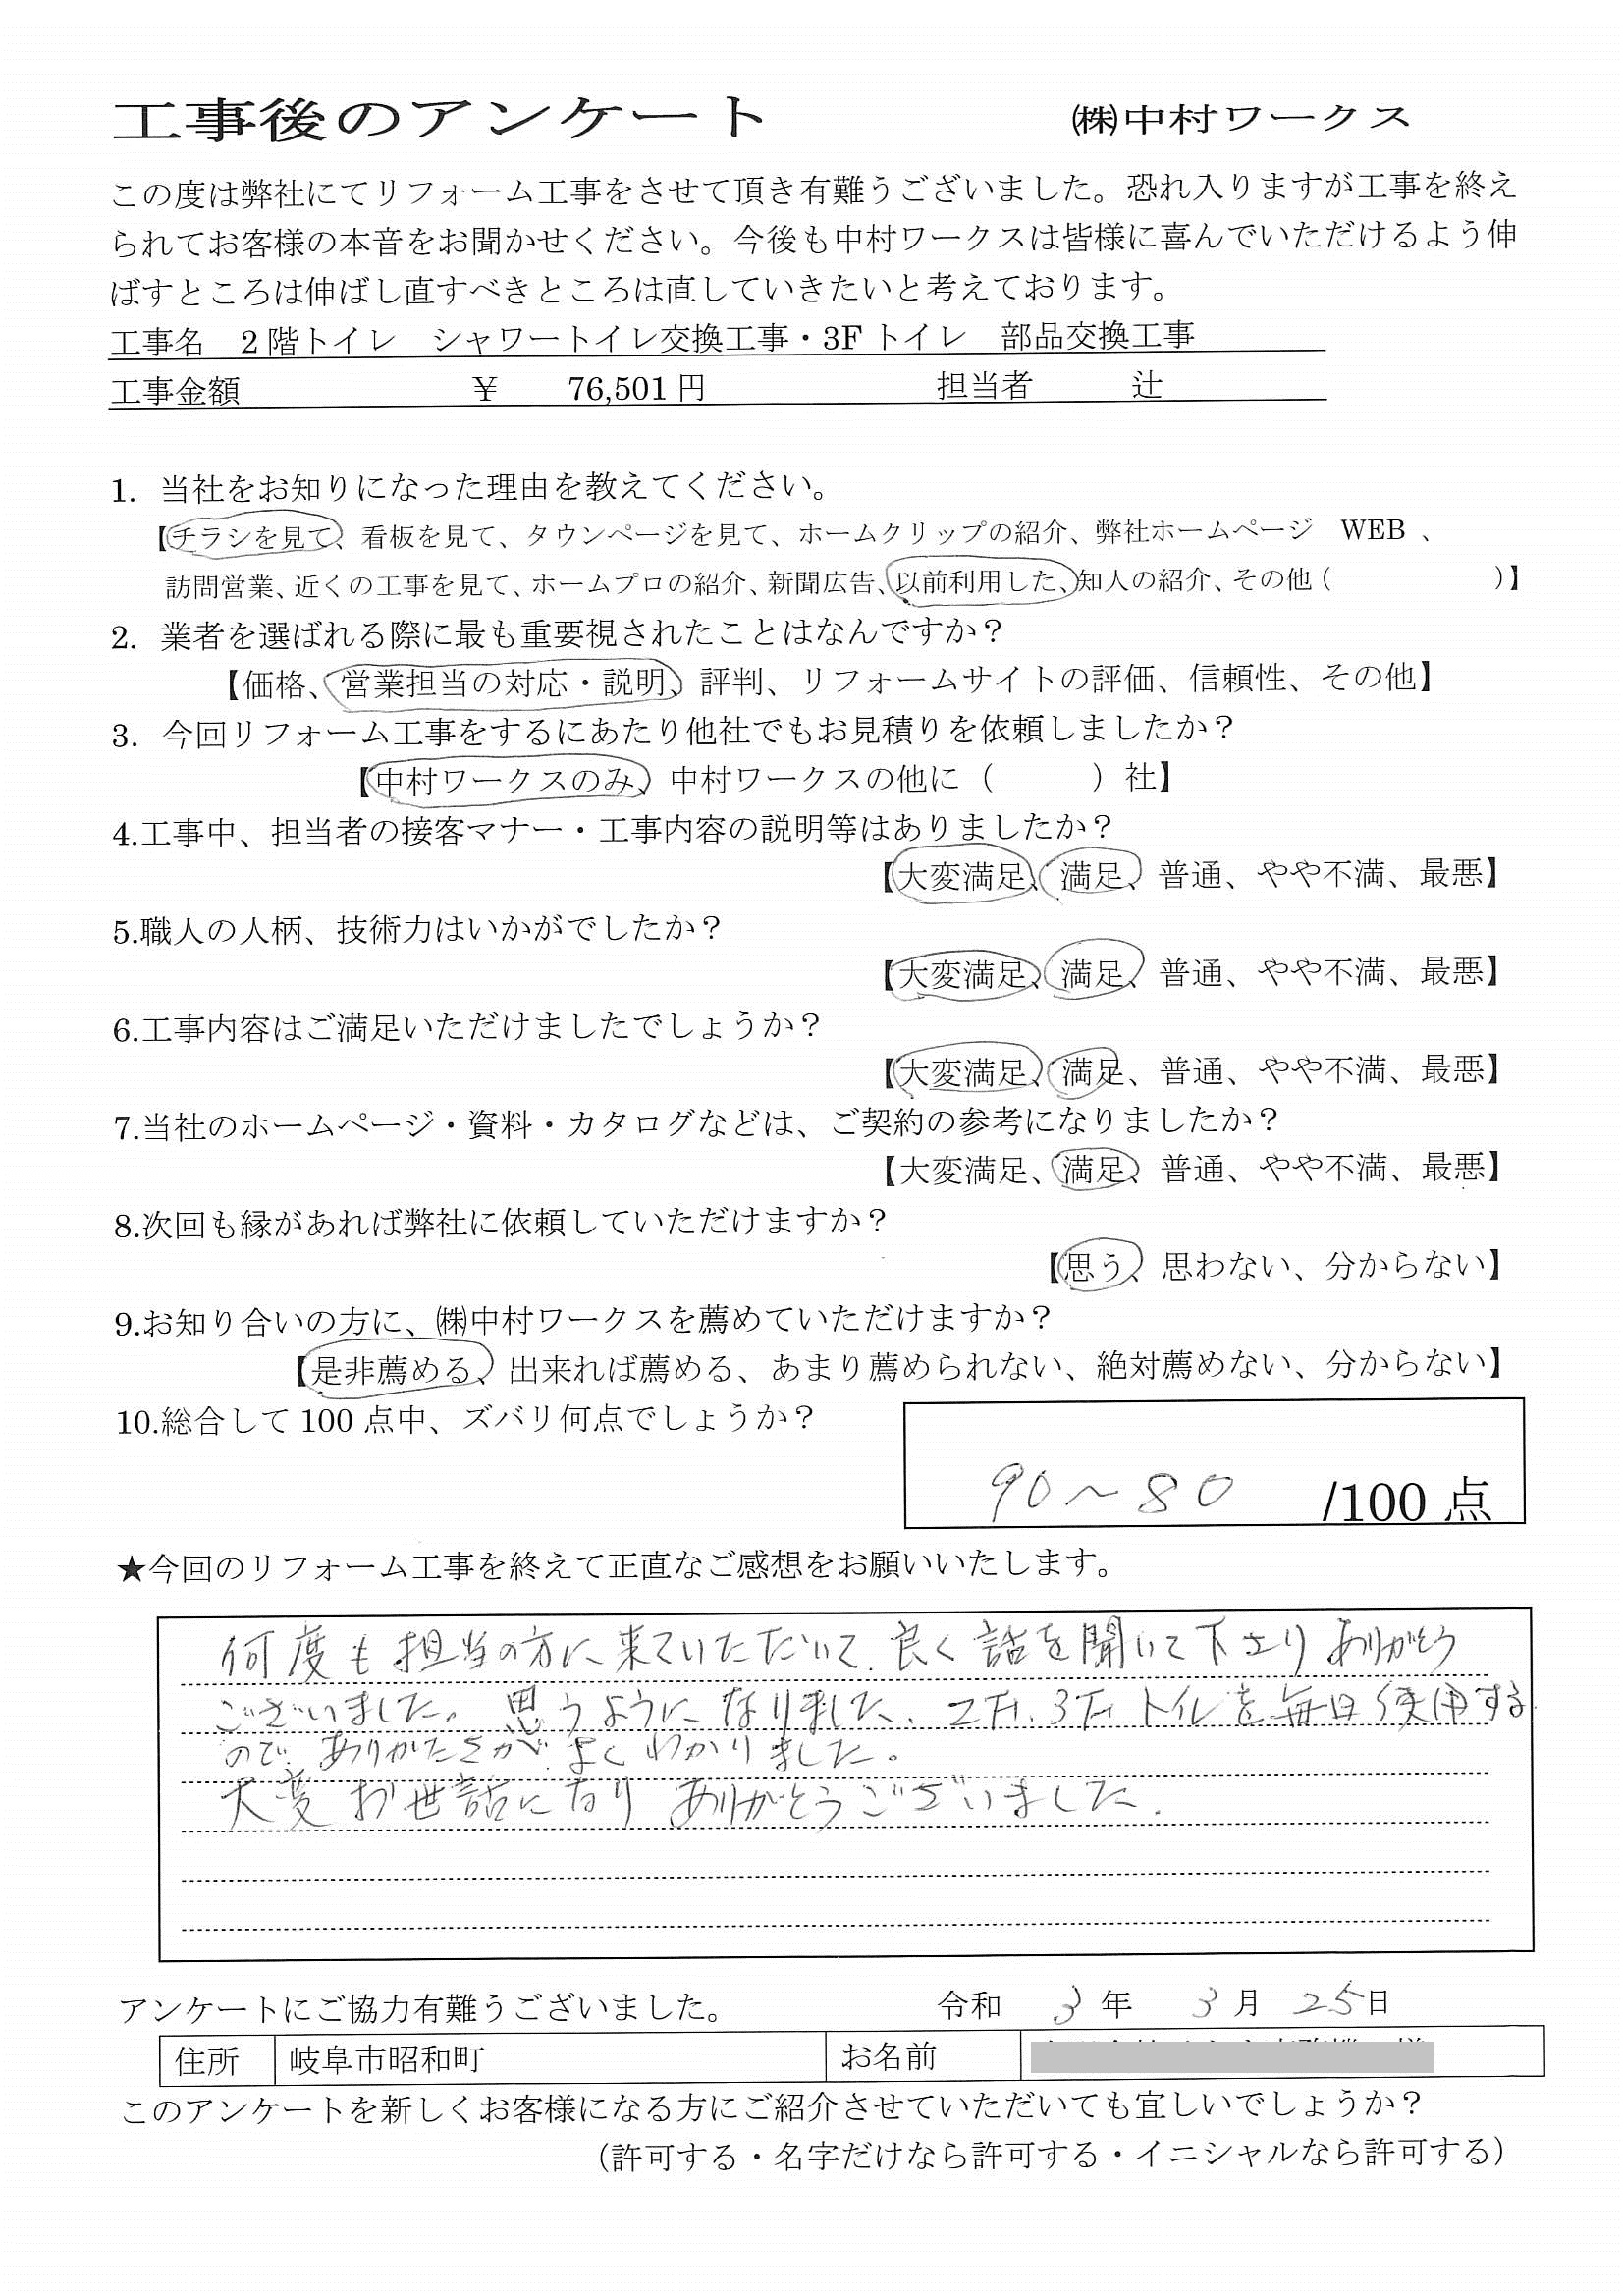 工事後のアンケート ㈱中村ワークス
この度は弊社にてリフォーム工事をさせて頂き有難うございました。恐れ入りますが工事を終え
られてお客様の本音をお聞かせください。今後も中村ワークスは皆様に喜んでいただけるよう伸
ばすところは伸ばし直すべきところは直していきたいと考えております。
工事名 2階トイレ シャワートイレ交換工事・3Fトイレ 部品交換工事
工事金額 ￥ 76,501円 担当者 辻
1. 当社をお知りになった理由を教えてください。
【チラシを見て、看板を見て、タウンページを見て、ホームクリップの紹介、弊社ホームページ WEB 、
訪問営業、近くの工事を見て、ホームプロの紹介、新聞広告、以前利用した、知人の紹介、その他（ ）】
2. 業者を選ばれる際に最も重要視されたことはなんですか？
【価格、営業担当の対応・説明、評判、リフォームサイトの評価、信頼性、その他】
3. 今回リフォーム工事をするにあたり他社でもお見積りを依頼しましたか？
【中村ワークスのみ、中村ワークスの他に（ ）社】
4.工事中、担当者の接客マナー・工事内容の説明等はありましたか？
【大変満足、満足、普通、やや不満、最悪】
5.職人の人柄、技術力はいかがでしたか？
【大変満足、満足、普通、やや不満、最悪】
6.工事内容はご満足いただけましたでしょうか？
【大変満足、満足、普通、やや不満、最悪】
7.当社のホームページ・資料・カタログなどは、ご契約の参考になりましたか？
【大変満足、満足、普通、やや不満、最悪】
8.次回も縁があれば弊社に依頼していただけますか？
【思う、思わない、分からない】
9.お知り合いの方に、㈱中村ワークスを薦めていただけますか？
【是非薦める、出来れば薦める、あまり薦められない、絶対薦めない、分からない】
10.総合して100点中、ズバリ何点でしょうか？
90～80 /100点
★今回のリフォーム工事を終えて正直なご感想をお願いいたします。
何度も担当の方に来ていただいて、良く話を聞いて下さりありがとう
ございました。思うようになりました、2F、3Fトイレを毎日使用する
ので、ありがたさがよくわかりました。
大変お世話になりありがとうございました。
アンケートにご協力有難うございました。 令和 3年 3月 25日
住所 岐阜市昭和町 お名前
このアンケートを新しくお客様になる方にご紹介させていただいても宜しいでしょうか？
（許可する・名字だけなら許可する・イニシャルなら許可する）